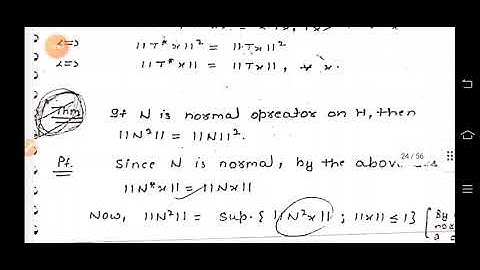 <=> ||T*x||² = ||Tx||²
<=> ||T*x|| = ||Tx||, ∀ x.
Thm If N is normal opreator on H, then
||N²|| = ||N||².
Pf. Since N is normal, by the above
24/56
||N*x|| = ||Nx||
Now, ||N²|| = sup.{ ||N²x|| ; ||x|| ≤ 1} [By